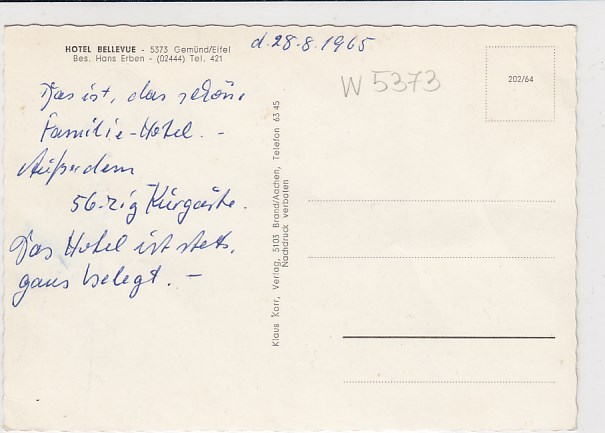 HOTEL BELLEVUE - 5373 Gemünd/Eifel
Bes. Hans Erben - (02444) Tel. 421
d. 28.8.1965
W 5373
202/64
Das ist, das schöne
Familie-Hotel. -
Außerdem
56-zig Kurgäste.
Das Hotel ist stets,
ganz belegt. -
Klaus Karr, Verlag, 5103 Brand/Aachen, Telefon 63 45
Nachdruck verboten